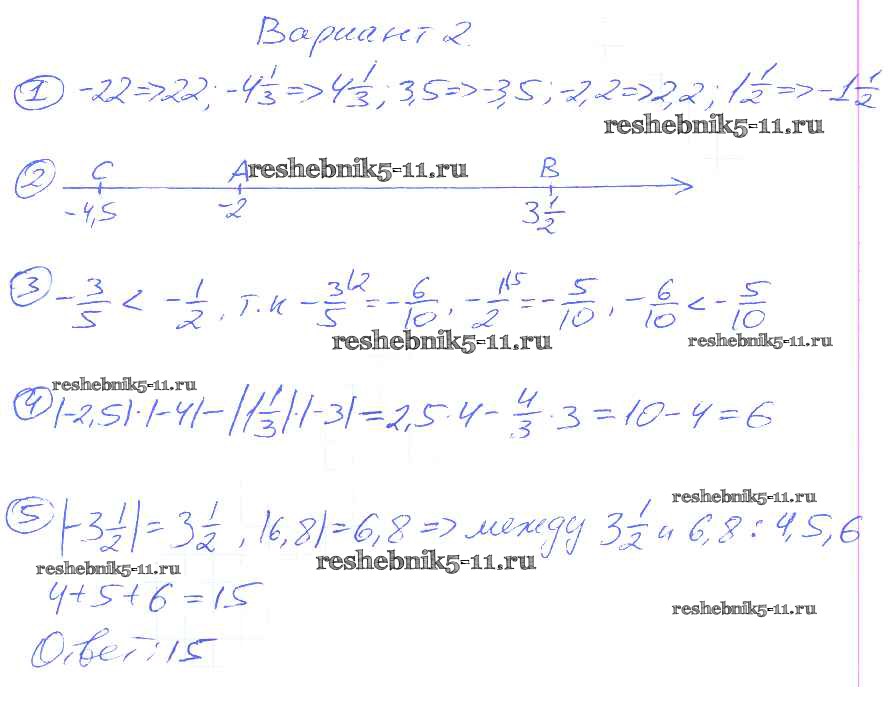 Вариант 2.
① -22=>22; -4 1/3=>4 1/3; 3,5=>-3,5; -2,2=>2,2; 1 1/2=>-1 1/2
reshebnik5-11.ru
② C A B
reshebnik5-11.ru
-4,5 -2 3 1/2
③ -3/5 < -1/2, т.к -3/5 |2 = -6/10, -1/2 |5 = -5/10, -6/10 < -5/10
reshebnik5-11.ru reshebnik5-11.ru
reshebnik5-11.ru
④ |-2,5|·|-4|-|1 1/3|·|-3|=2,5·4-4/3·3=10-4=6
reshebnik5-11.ru
⑤ |-3 1/2|=3 1/2, |6,8|=6,8=> между 3 1/2 и 6,8: 4,5,6
reshebnik5-11.ru reshebnik5-11.ru
4+5+6=15
reshebnik5-11.ru
Ответ: 15